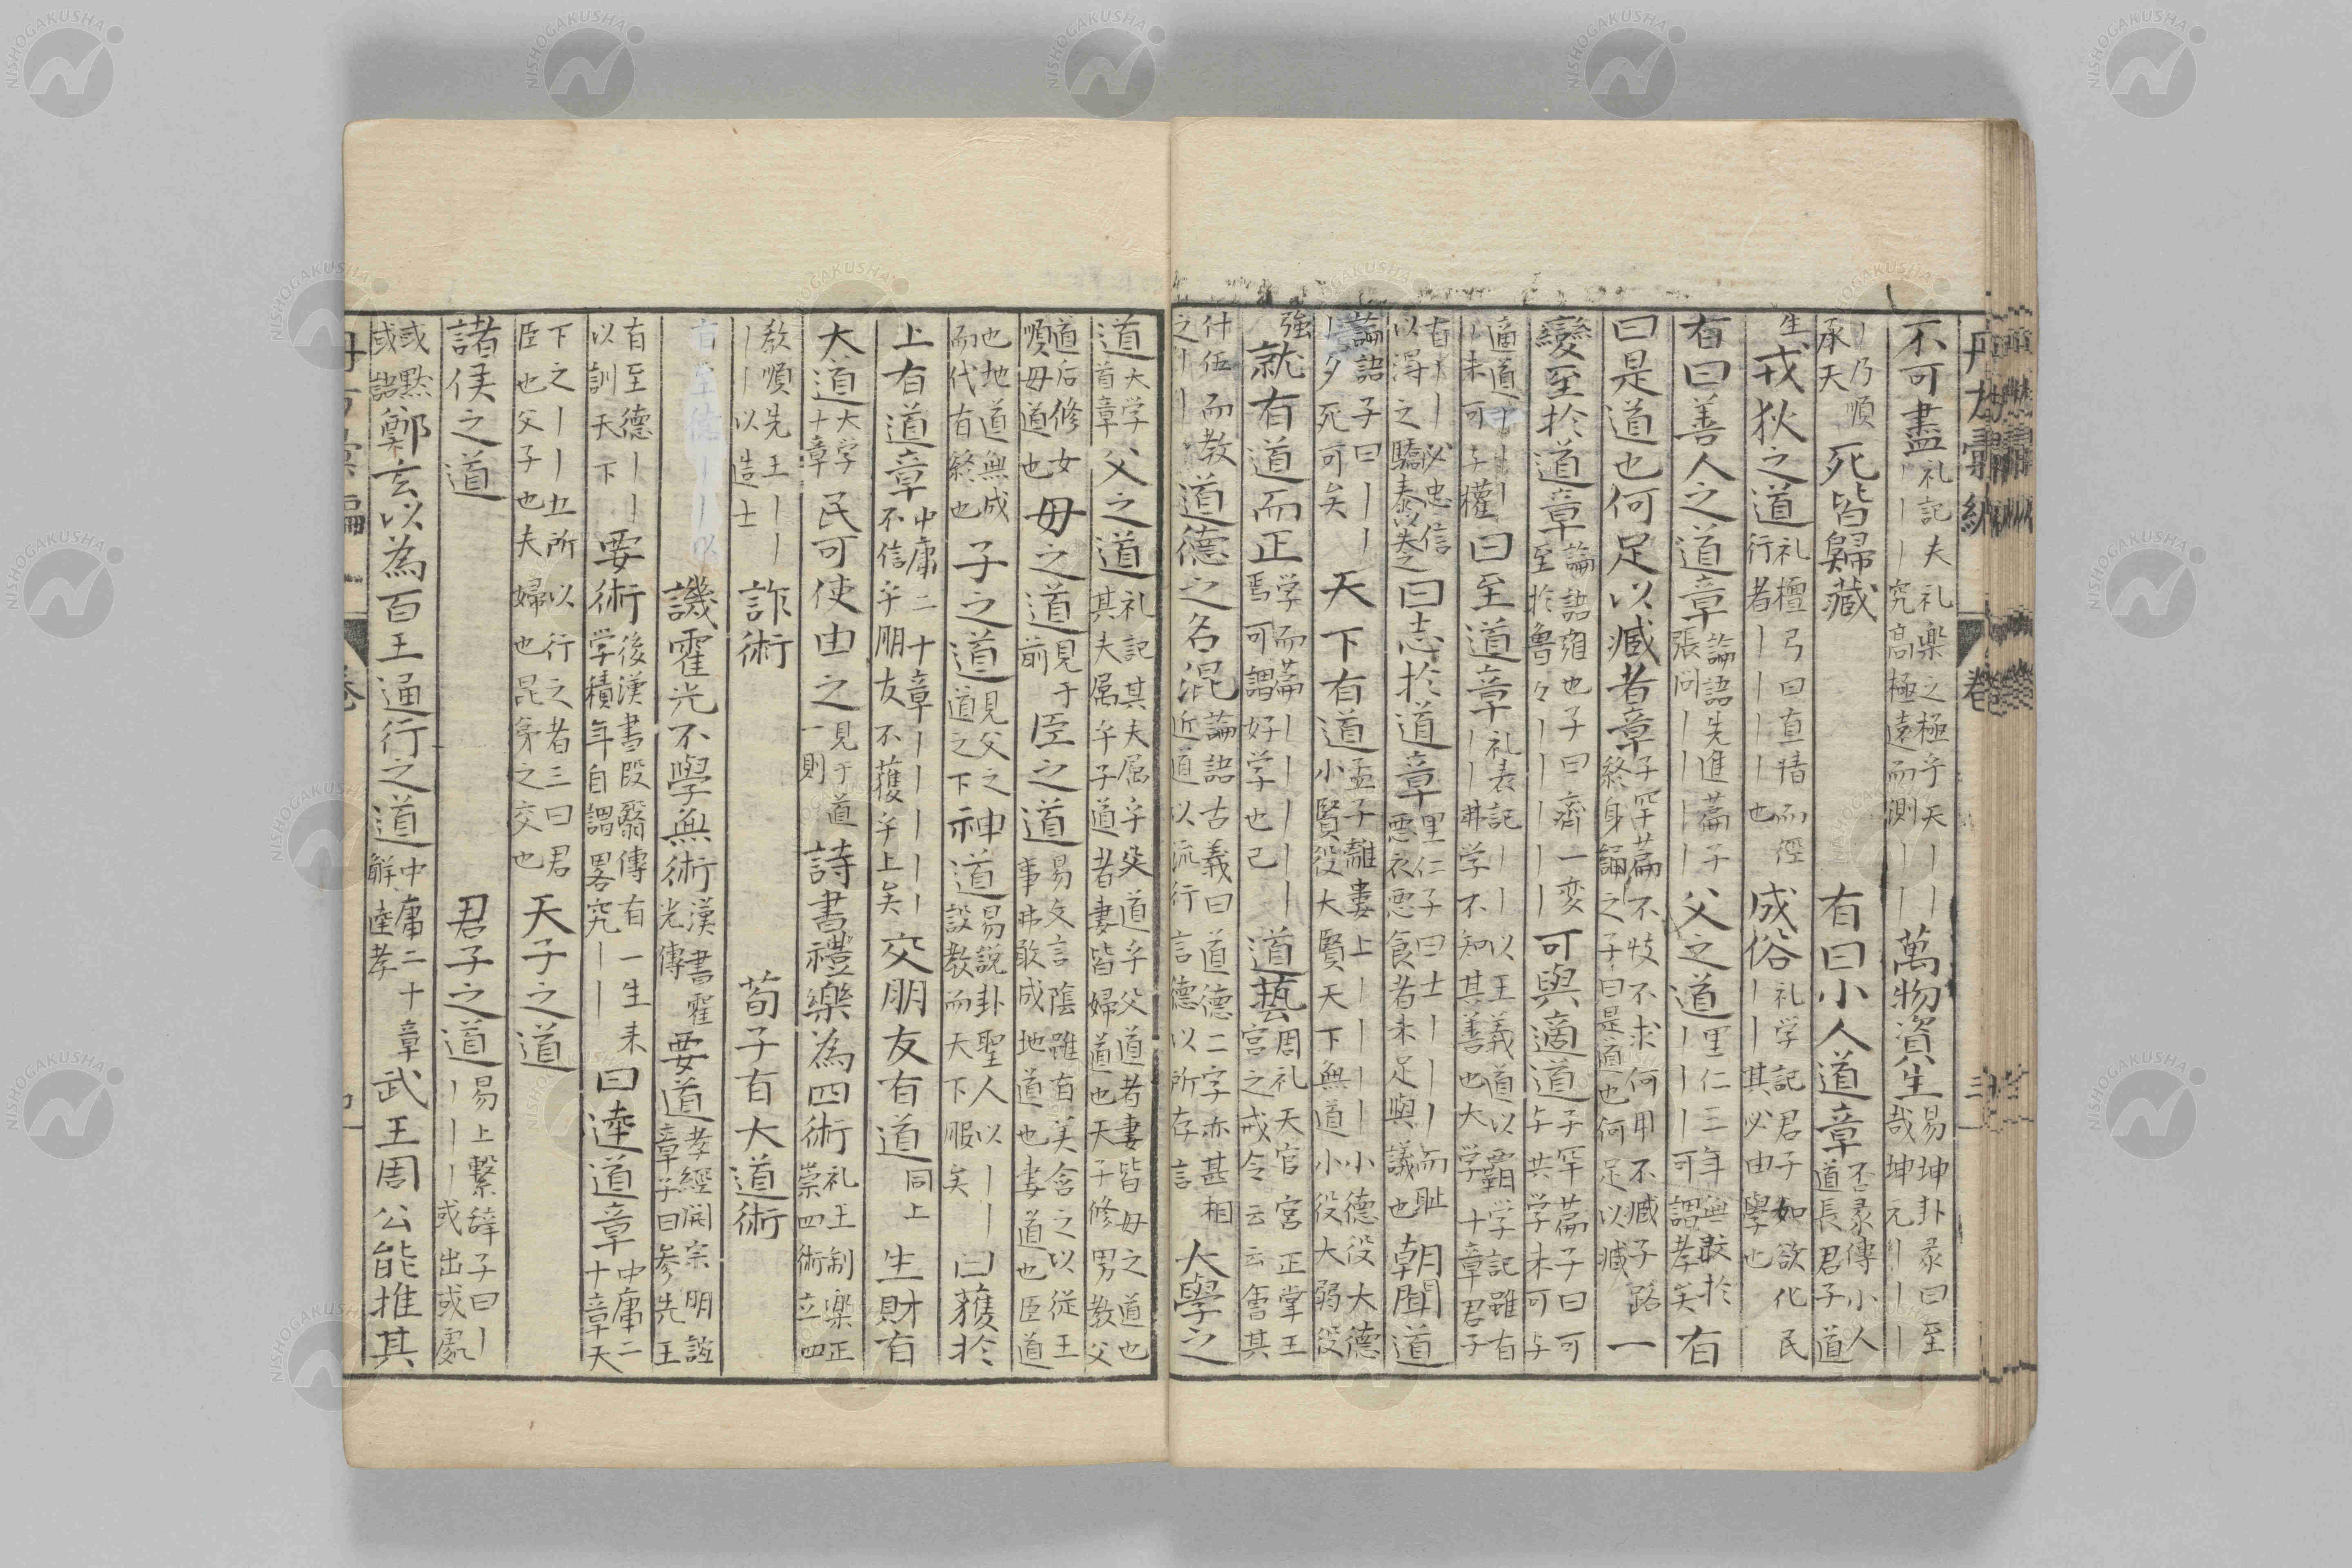 不可盡 礼記夫礼樂之極乎天丨丨丨丨丨究高極遠而測丨丨 萬物資生 易坤卦彖曰至哉坤元丨丨丨丨
丨乃順承天 死皆歸藏 有曰小人道章 否彖傳小人道長君子道
生 戎狄之道 礼檀弓曰直情而徑行者丨丨丨丨也 成俗 礼学記君子如欲化民丨丨其必由學也
有曰善人之道章 論語先進篇子張问丨丨丨丨 父之道 里仁三年無改於丨丨丨可謂孝矣 有
曰是道也何足以臧者章 子罕篇不忮不求何用不臧子路終身誦之子曰是道也何足以臧 一
變至於道章 論語雍也子曰齊一変至於魯々丨丨丨丨丨 可與適道 子罕篇子曰可与共学未可与
適道丨丨丨丨未可子權 曰至道章 礼表記丨丨以王義道以霸学記雖有丨丨弗学不知其善也大学十章君子
有丨丨必忠信以得之驕泰以失之 曰志於道章 里仁子曰士丨丨丨而耻悪衣悪食者未足與議也 朝聞道
論語子曰丨丨丨夕死可矣 天下有道 孟子離婁上丨丨丨丨小德役大德小賢役大賢天下無道小役大弱役
強 就有道而正 学而篇丨丨丨丨丨焉可謂好学也已 道藝 周礼天官宮正掌王宮之戒令云云會其
什伍而教之丨丨 道德之名混 論語古義曰道德二字亦甚相近道以流行言德以所存言 大學之
道 大学首章 父之道 礼記其夫属乎父道乎父道者妻皆母之道也其夫属乎子道者妻皆婦道也天子修男教父
道后修女順母道也 母之道 見于前 臣之道 易文言隂雖有美含之以従王事弗敢成地道也妻道也臣道
也地道無成而代有終也 子之道 見父之道之下 神道 易說卦聖人以丨丨設教而天下服矣 曰獲於
上有道章 中庸二十章丨丨丨丨丨不信乎朋友不獲乎上矣 交朋友有道 同上 生財有
大道 大学十章 民可使由之 見于道一則 詩書禮樂為四術 礼王制樂正崇四術立四
教順先王丨丨丨以造士 詐術 荀子有大道術
譏霍光不學無術 漢書霍光傳 要道 孝經開宗明誼章子曰参先王
有至德丨丨以訓天下 要術 後漢書段翳傳有一生来学積年自謂畧究丨丨 曰逹道章 中庸二十章天
下之丨丨五所以行之者三曰君臣也父子也夫婦也昆弟之交也 天子之道
諸侯之道 君子之道 易上繋辞子曰丨丨丨丨或出或處
或黙或語 鄭玄以為百王通行之道 中庸二十章解逹孝 武王周公能推其